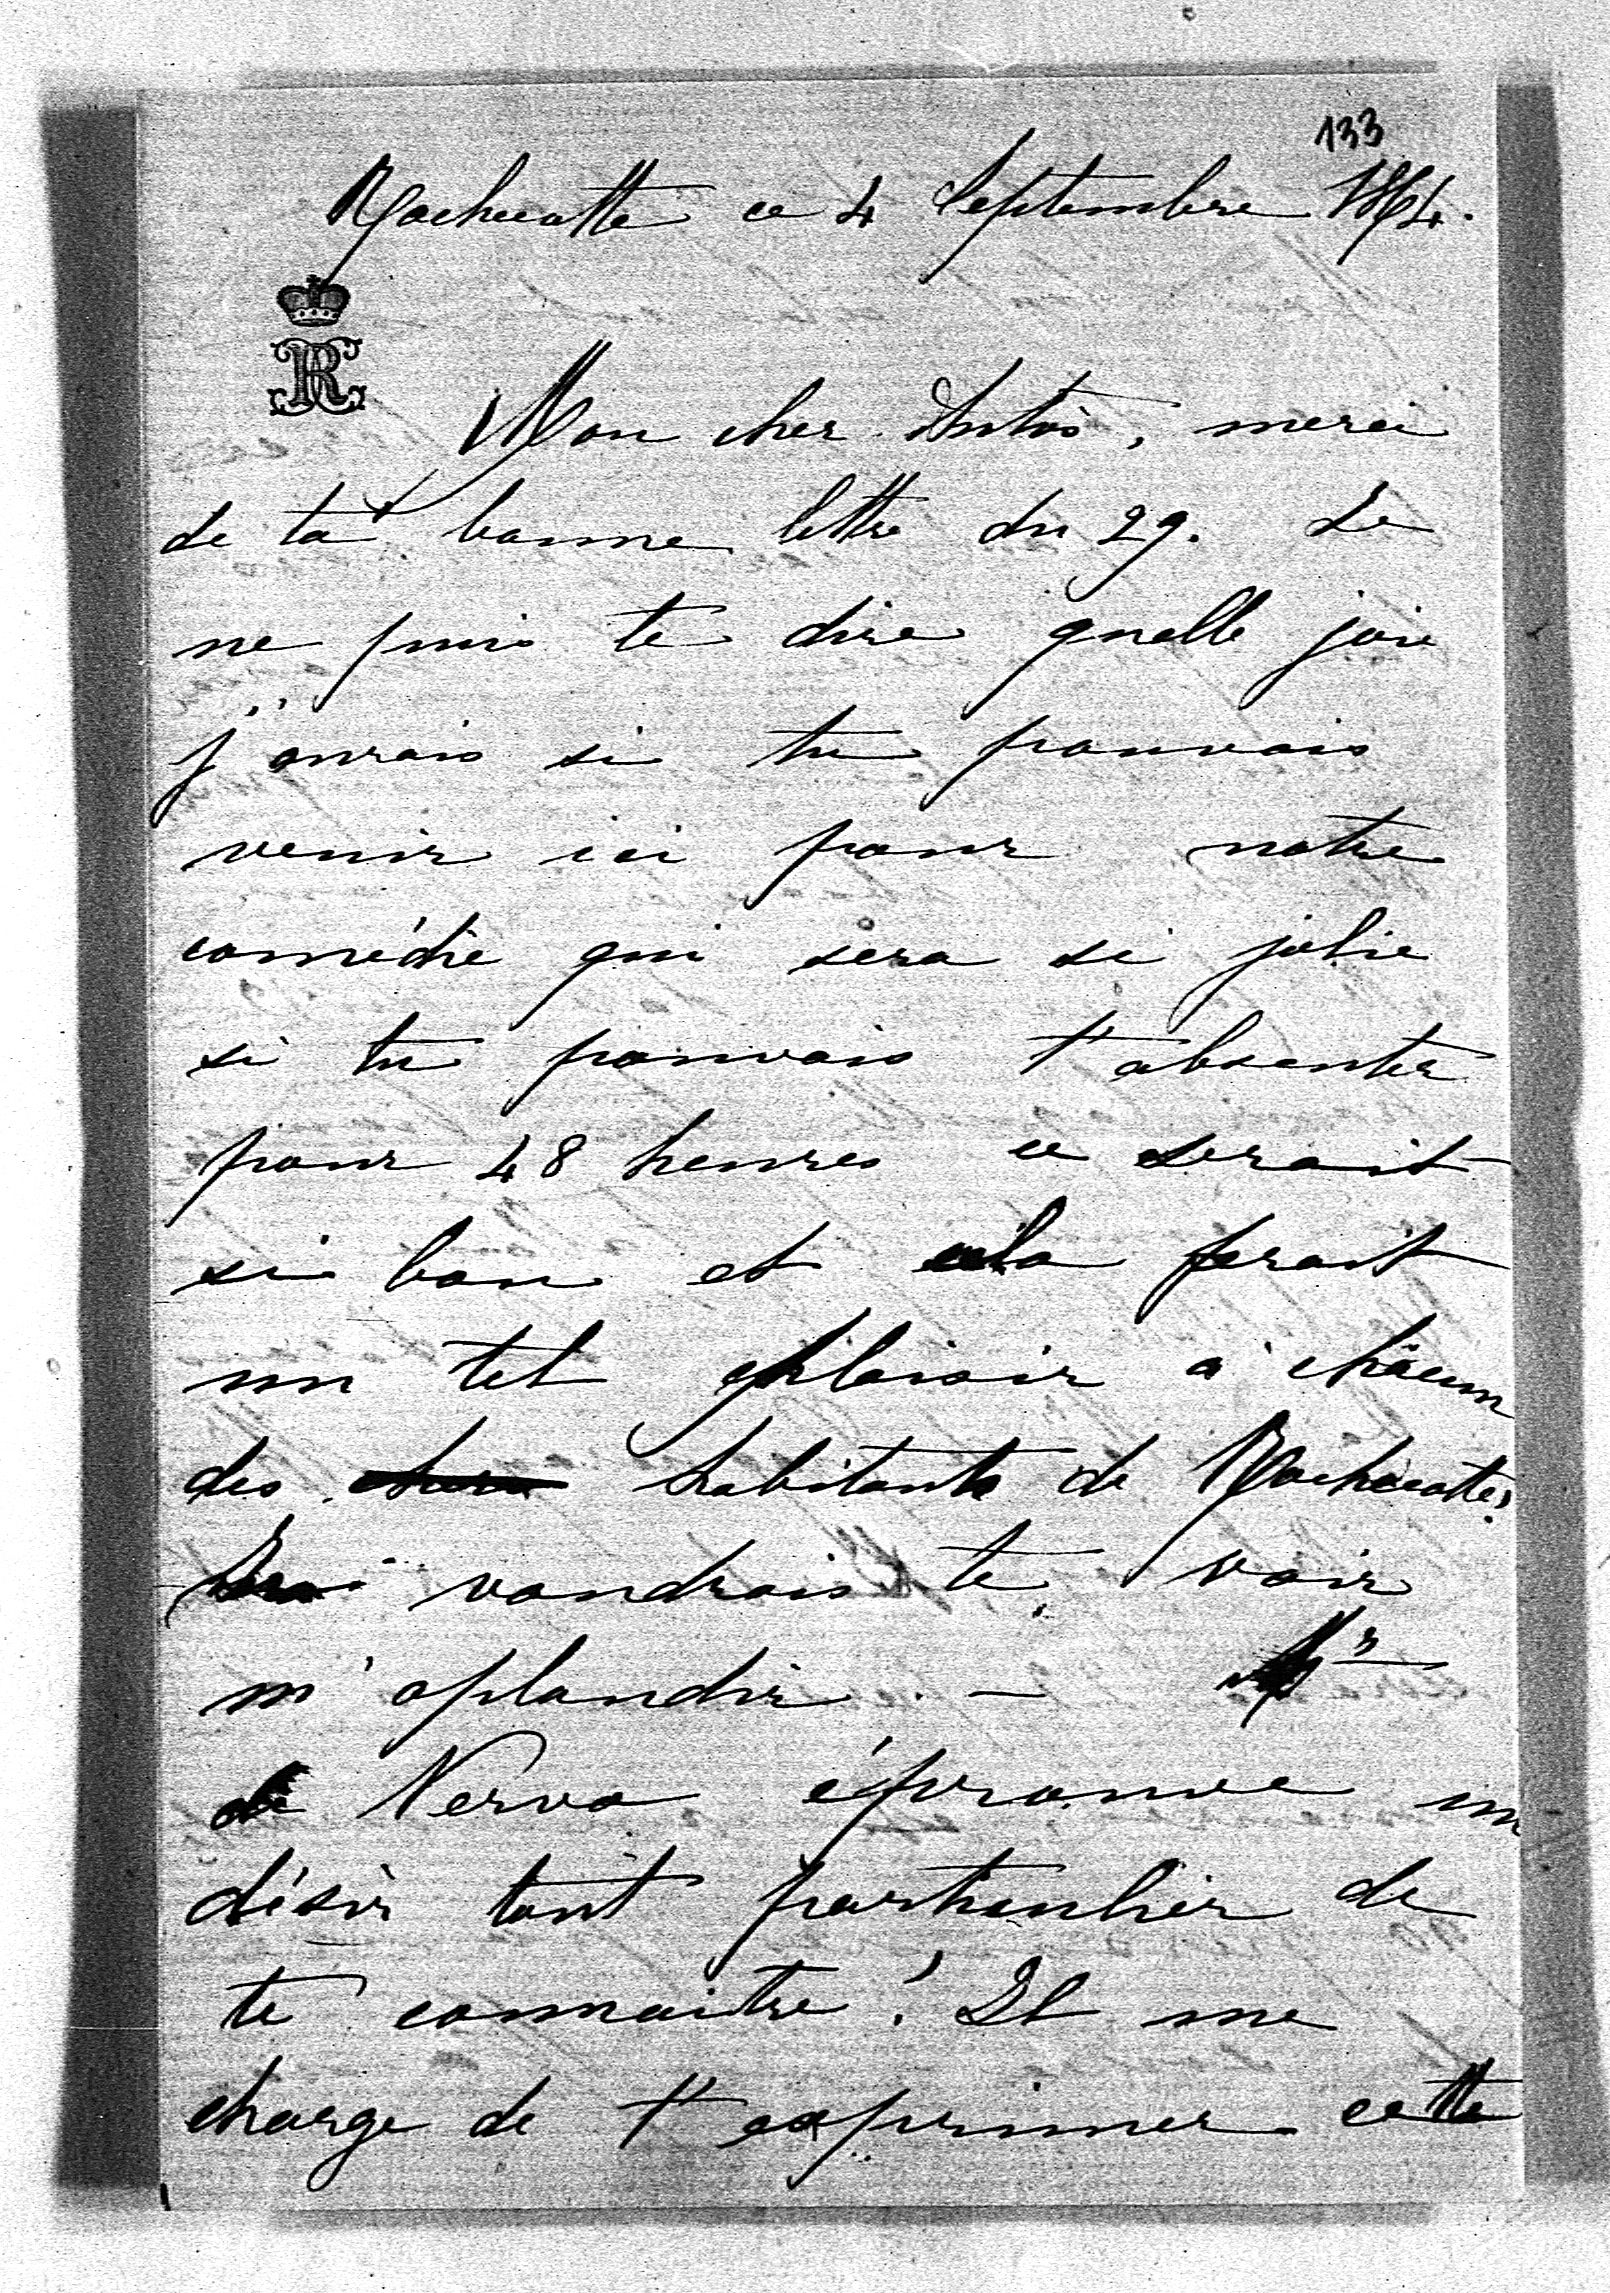 133
Rochecotte ce 4 Septembre 1864.
R
Mon cher Antoś, merci
de ta bonne lettre du 29. Je
ne puis te dire quelle joie
j'aurais si tu pouvais
venir ici pour notre
comédie qui sera si jolie
si tu pouvais t'absenter
pour 48 heures ce serait
si bon et cela ferait
un tel plaisir à chacun
des habitants de Rochecotte.
voudrais te voir
m'aplaudir. — Mr
de Nervo éprouve un
désir tout particulier de
te connaitre! Il me
charge de t'exprimer cette